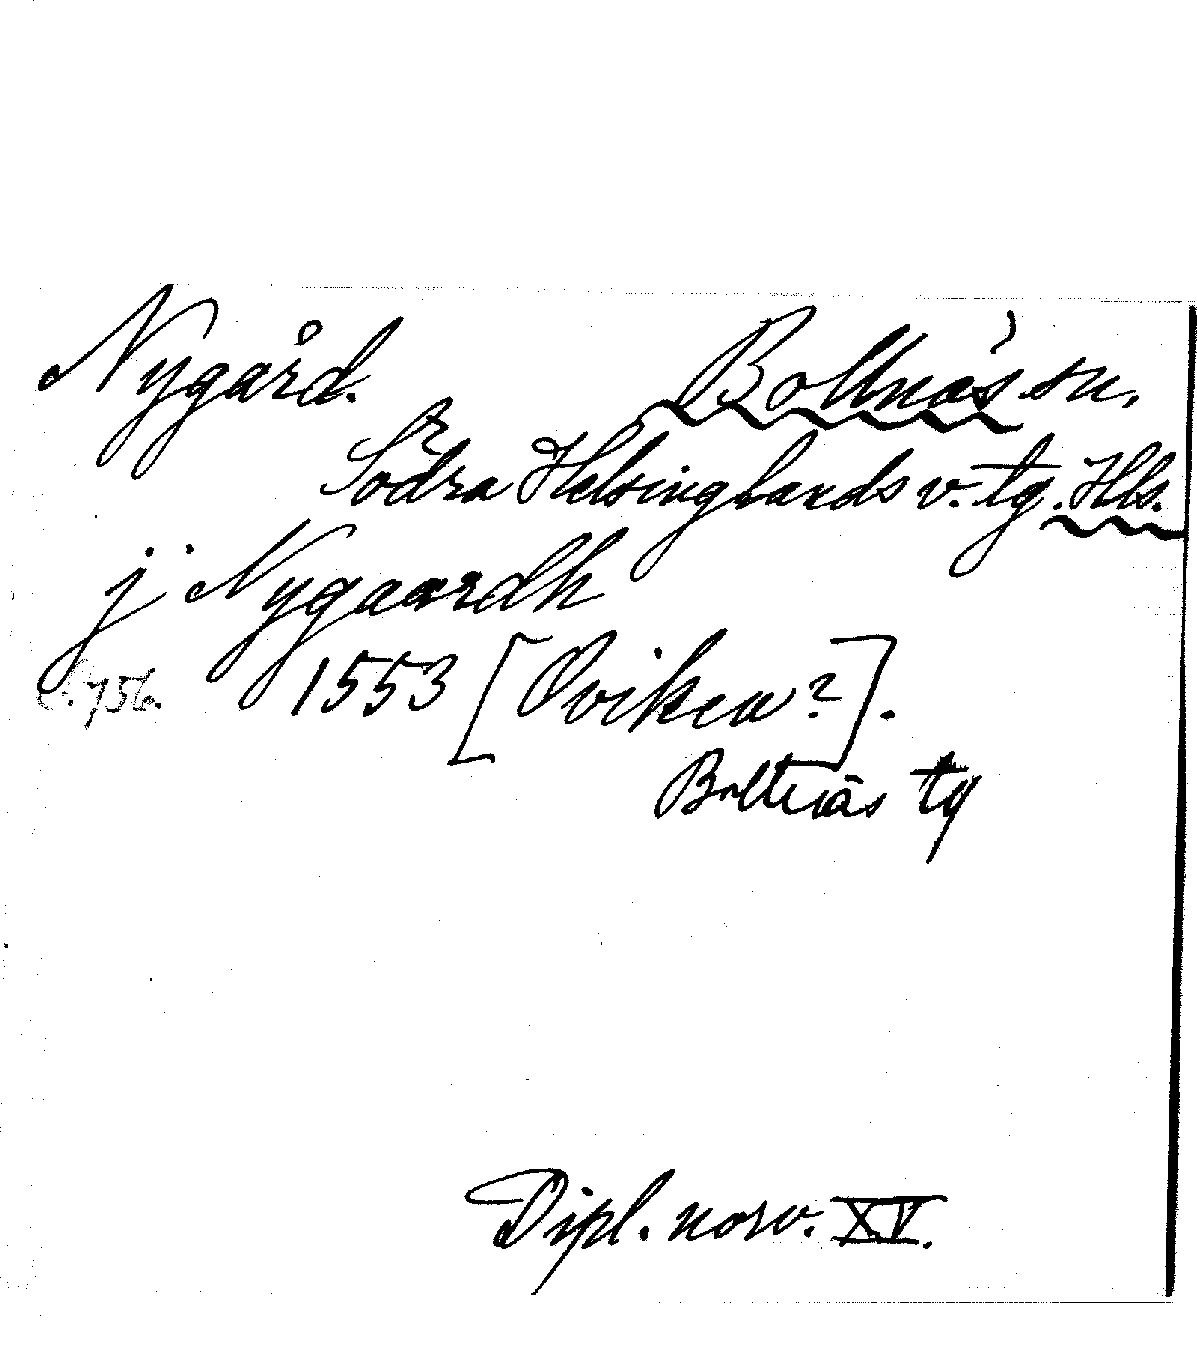 Nygård. Bollnäs sn,
Södra Helsinglands v. tg. Hls.
j Nygaardh
s. 756. 1553 [Oviken?].
Bollnäs tg
Dipl. norv. XV.